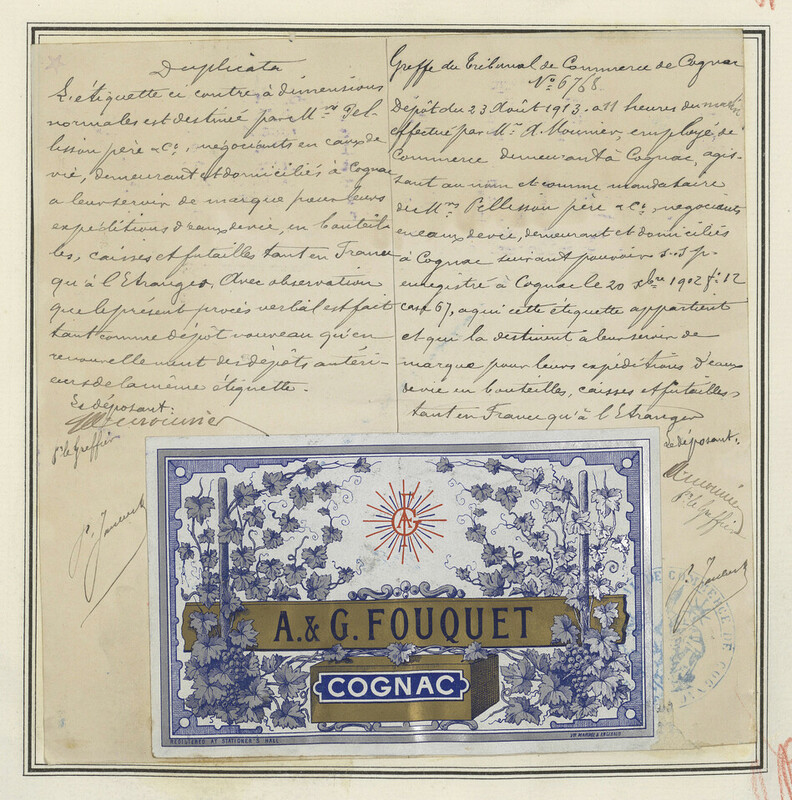 Duplicata
L'étiquette ci contre, à dimensions
normales est destinée par Mrs Pel-
lisson père & Cie, négociants en eaux de
vie, demeurant et domiciliés à Cognac
a leur servir de marque pour leurs
expéditions d'eaux devie, en bouteil-
les, caisses et futailles tant en France
qu'à l'Etranger. Avec observation
que le présent procès verbal est fait
tant comme dépôt nouveau qu'en
renouvellement des dépôts antéri-
eurs de la même étiquette.
Le déposant:
AMounier
pr le Greffier
Greffe du Tribunal de Commerce de Cognac
No 6768
Dépôt du 23 Août 1913. a 11 heures du matin
effectué par Mr A. Mounier, employé de
Commerce demeurant à Cognac, agis-
sant au nom et comme mandataire
de Mrs Pellisson père & Cie, négociants
en eaux devie, demeurant et domiciliés
à Cognac suivant pouvoir s.s.p.
enregistré à Cognac le 20 xbre 1902 fo 12
case 67, a qui cette étiquette appartient
et qui la destinent a leur servir de
marque pour leurs expéditions d'eaux
devie en bouteilles, caisses et futailles
tant en France qu'à l'Etranger
Le déposant:
AMounier
pr le Greffier
AG
A. & G. FOUQUET
COGNAC
REGISTERED AT STATIONER'S HALL
DE COMMERCE DE COGNAC